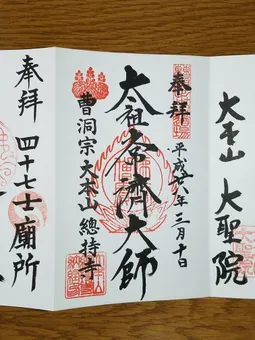 大本山 大聖院
奉拝
平成八年三月十日
太祖常濟大師
曹洞宗大本山總持寺
四十七士廟所
奉拝